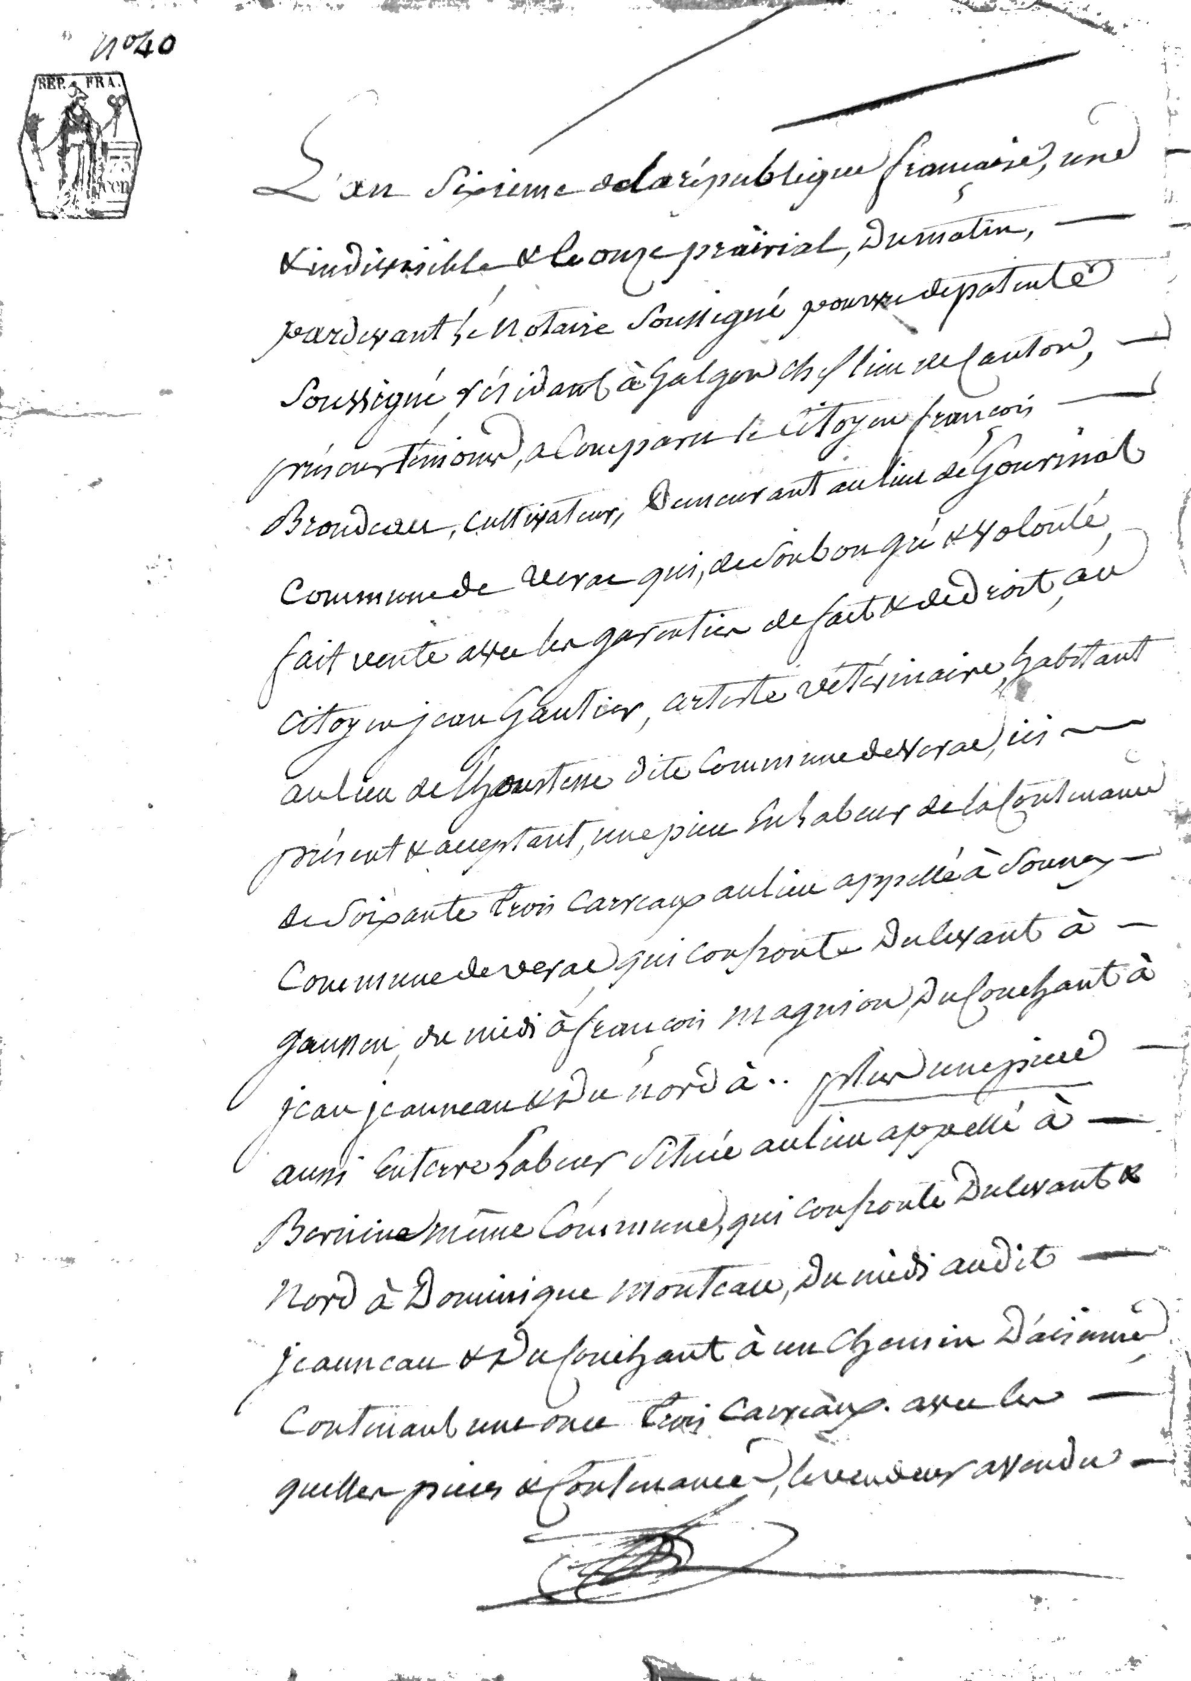 N° 40
REP. FRA.
75
cen
L'an sixieme de la république francaise, une
& indivisible & le onze prairial, du matin,
pardevant le notaire soussigné pourvu de patente
soussigné, résidant à Galgon chef lieu de Canton,
présens témoins, a Comparu le Citoyen françois
Brondeau, cultivateur, demeurant au lieu de
Commune de verac qui, de son bon gré & volonté,
fait vente avec les garenties de fait & de droit, au
Citoyen jean Gautier, artiste vétérinaire, habitant
au lieu de dite Commune de verac, ici
présent & acceptant, une piece en labeur de la Contenance
de soixante trois carreaux au lieu appellé à
Commune de verac, qui confronte du levant à
du midi à françois magnion, du Couchant à
jean jeanneau & du nord à .. plus une piece
aussi en terre labeur située au lieu appellé à
même Commune, qui confronte du levant &
nord à Dominique monteau, du midi audit
jeanneau & du Couchant à un chemin
Contenant une once trois carreaux. avec les
quelles pieces & Contenance, le vendeur a vendu